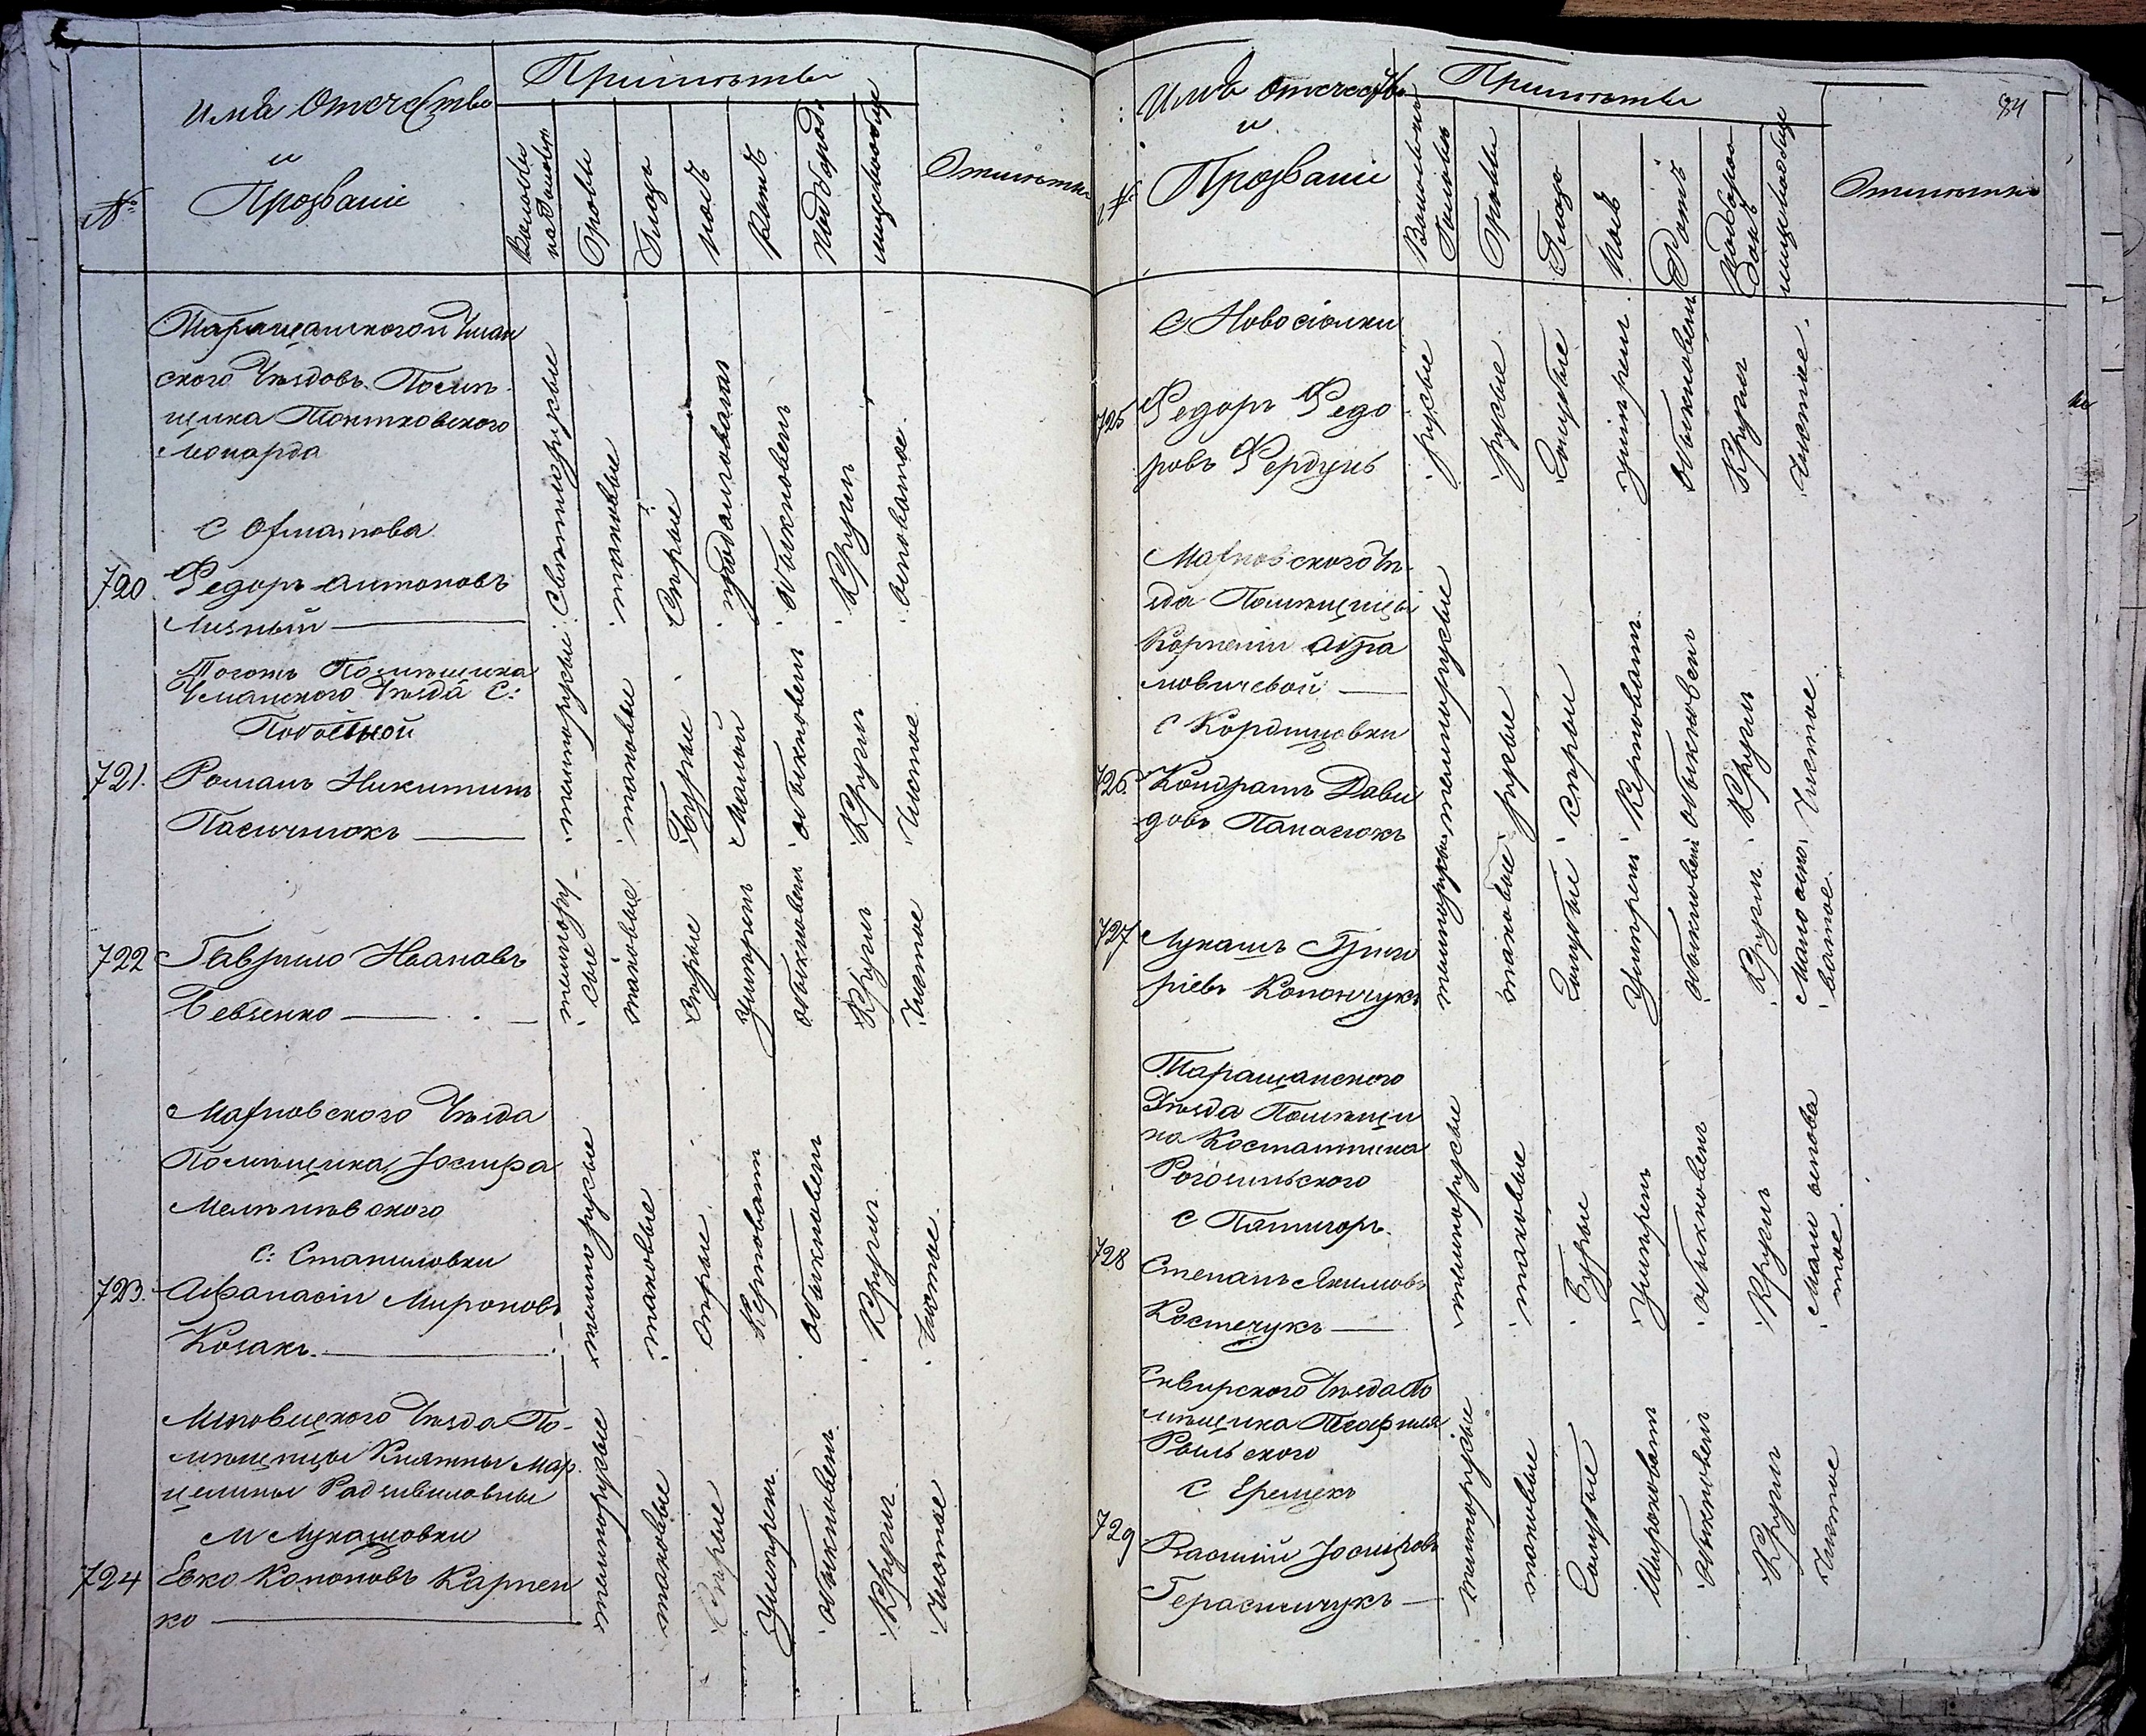 №
Имя Отечество
и
Прозваніе
Примѣты
Волосы
на голове
Брови
Глаза
Носъ
Ротъ
Подбород:
лице вообще
Отмѣтка
Таращанского и Уман
ского Уѣздовъ. Помѣ-
щика
Леонарда
720
Федоръ Антоновъ
Лизный
Светлорусые
таковые
Серые
продолговатый
обыкновен
Кругл
осповатое.
Тогожъ Помѣщика
Уманского Уѣзда С:
721.
Романъ Никитинъ
Пасичнюкъ
темнорусые
таковые
Бурые
Малой
обыкновен
Кругл
Чистое.
722
Гаврило Ивановъ
Бевзенко
темнору-
сые
таковые
серые
Умерен
обыкновен
Кругл
Чистое
Махновского Уѣзда
Помѣщика Іосифа
С: Станиловки
723.
Афанасій Мироновъ
Козакъ.
темнорусые
таковые
серые.
Керповат
обыкновен
Кругл.
Чистое.
Липовецкого Уѣзда По-
мѣщицы Княжны Мар
целины Радзивиловны
М Лукашовки
724
Евко Кононовъ Карпен
ко
темнорусые
таковые
Серые
Умерен.
обыкновен.
Кругл.
Чистое
84
№
Имя Отечество
и
Прозваніе
Примѣты
Волосы на
Головѣ
Брови
Глаза
Носъ
Ротъ
Подборо
докъ
лице вообще
Отмѣтка
С. Новосіолки
725
Федоръ Федо
ровъ Фердунь
русые
русые.
Голубые
умерен.
Обыкновен
Кругл
Чистое.
Махновского Уѣ-
зда Помѣщицы
Корнеліи Абра
мовичевой
С Кордишовки
726.
Кондратъ Дави
довъ Панасюкъ
темнорусые
русые
Серые
Керповат.
обыкновен
Кругл
Чистое.
727
Лукашъ Григо
ріевъ Конончукъ
темнорусые
таковые
Голубые
Умерен
обыкновен
Кругл.
Мало оспо
ватое.
Таращанского
Уѣзда Помѣщи
ка Костантина
С Пятигоръ.
728
Степанъ Якимовъ
Костечукъ
темнорусые
таковые
Бурые
Умерен
обыкновен
Кругл
Мало оспова
тое.
Сквирского Уѣзда По
мѣщика Теофиля
Рыльского
С Ерешекъ
729
Василій Іосифовъ
Герасимчукъ
темнорусые
таковые
Голубые
Широковат
обыкновен
Кругл
Чистое